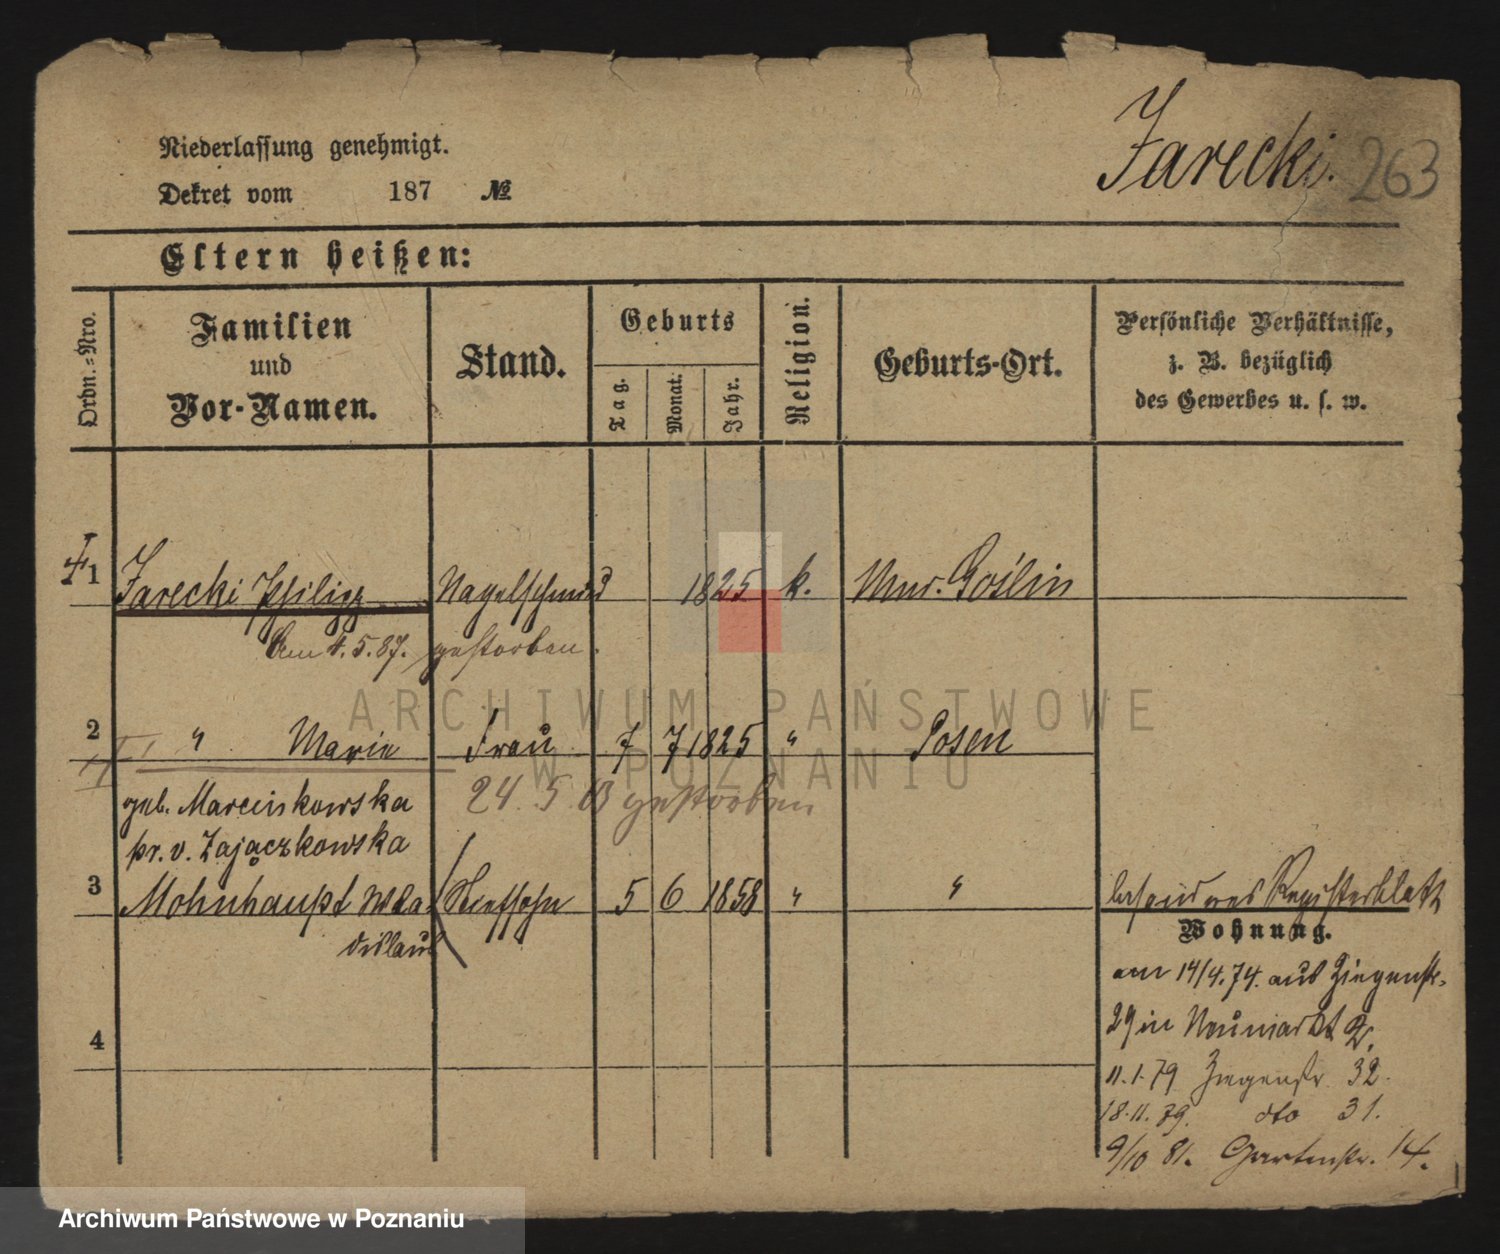 Jarecki. 263
Niederlassung genehmigt.
Dekret vom 187 №
Eltern heißen:
Ordn.-Nro.
Familien
und
Vor-Namen.
Stand.
Geburts
Tag.
Monat.
Jahr.
Religion.
Geburts-Ort.
Persönliche Verhältnisse,
z. B. bezüglich
des Gewerbes u. s. w.
1 Jarecki Philipp Nagelschmied 1825 k. Mur. Goślin
Am 4.5.87. gestorben.
2 " Marie Frau 7 7 1825 " Posen
geb. Marcinkowska 24. 5. 03 gestorben
pr. v. Zajączkowska
3 Mohnhaupt Wla- Stiefsohn 5 6 1858 " " besonderes Registerblatt
dislaus
Wohnung.
am 14/4.74. aus Ziegenstr.
29 in Neumarkt 2.
4
11.1.79 Ziegenstr 32.
18.11.79. dto 31.
9/10 81. Gartenstr. 14.
ARCHIWUM PAŃSTWOWE
W POZNANIU
Archiwum Państwowe w Poznaniu